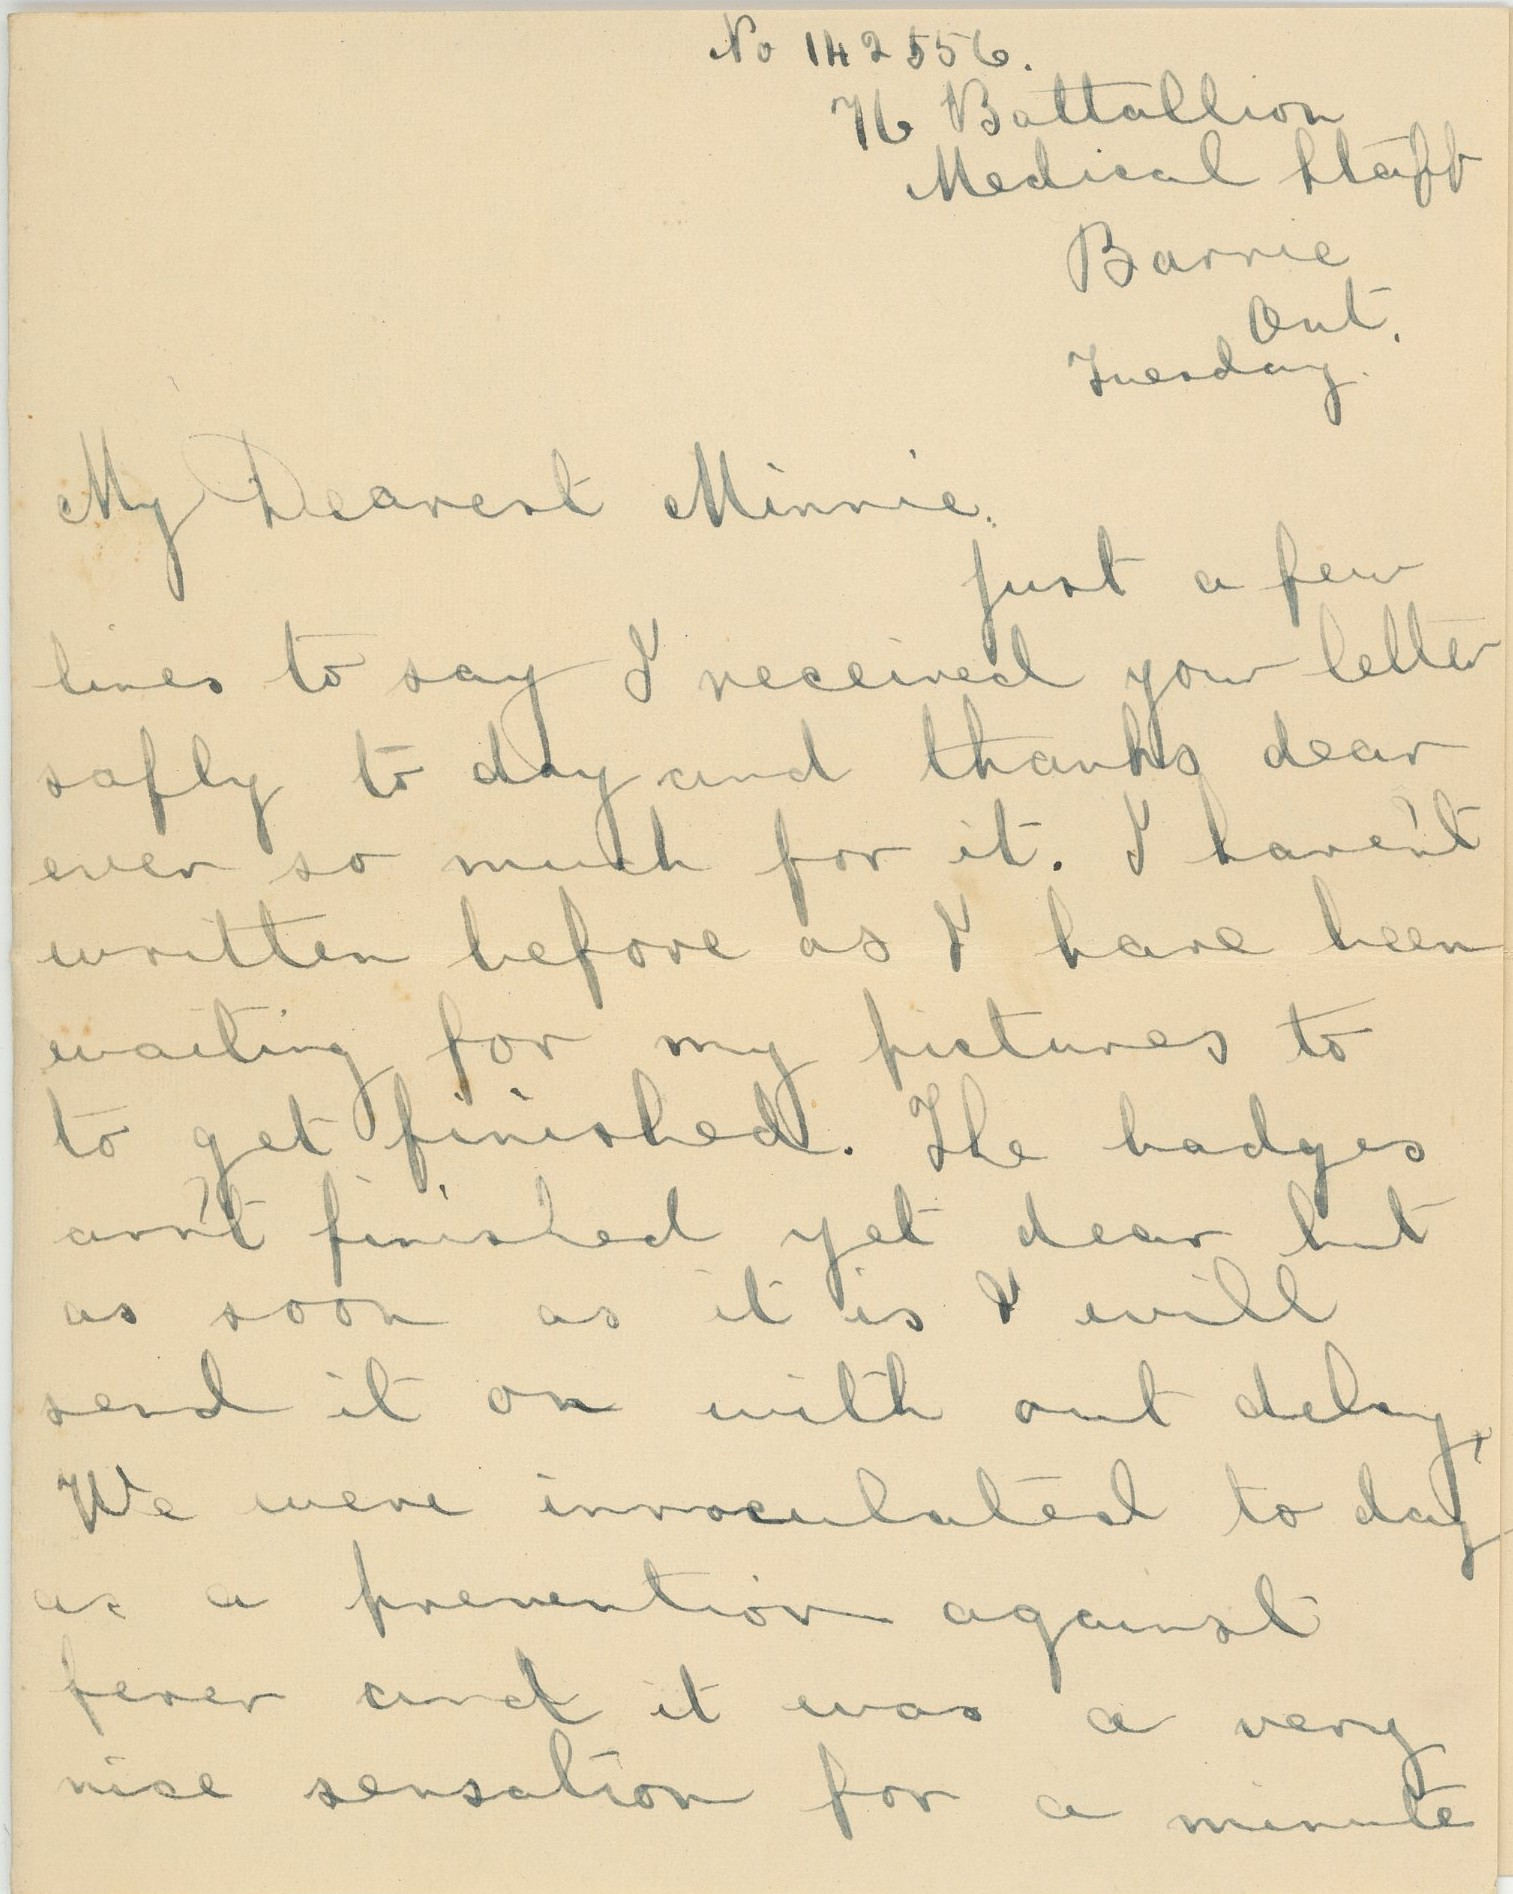 No 142556.
76 Battallion
Medical Staff
Barrie
Ont.
Tuesday.
My Dearest Minnie.
just a few
lines to say I received your letter
safly to day and thanks dear
ever so much for it. I haven't
written before as I have been
waiting for my pictures to
to get finished. The badges
arn't finished yet dear but
as soon as it is I will
send it on with out delay,
We were innoculated to day
as a prevention against
fever and it was a very
nice sensation for a minute